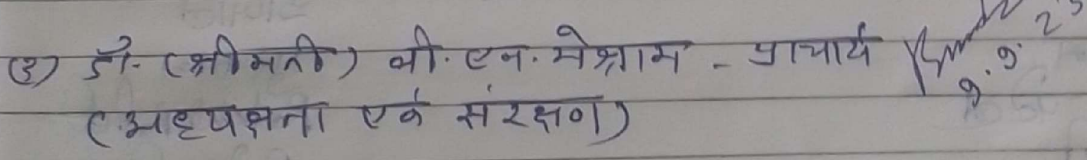 (3) डॉ. (श्रीमती) वी. एन. मेश्राम - प्राचार्य
(अध्यक्षता एवं संरक्षण)